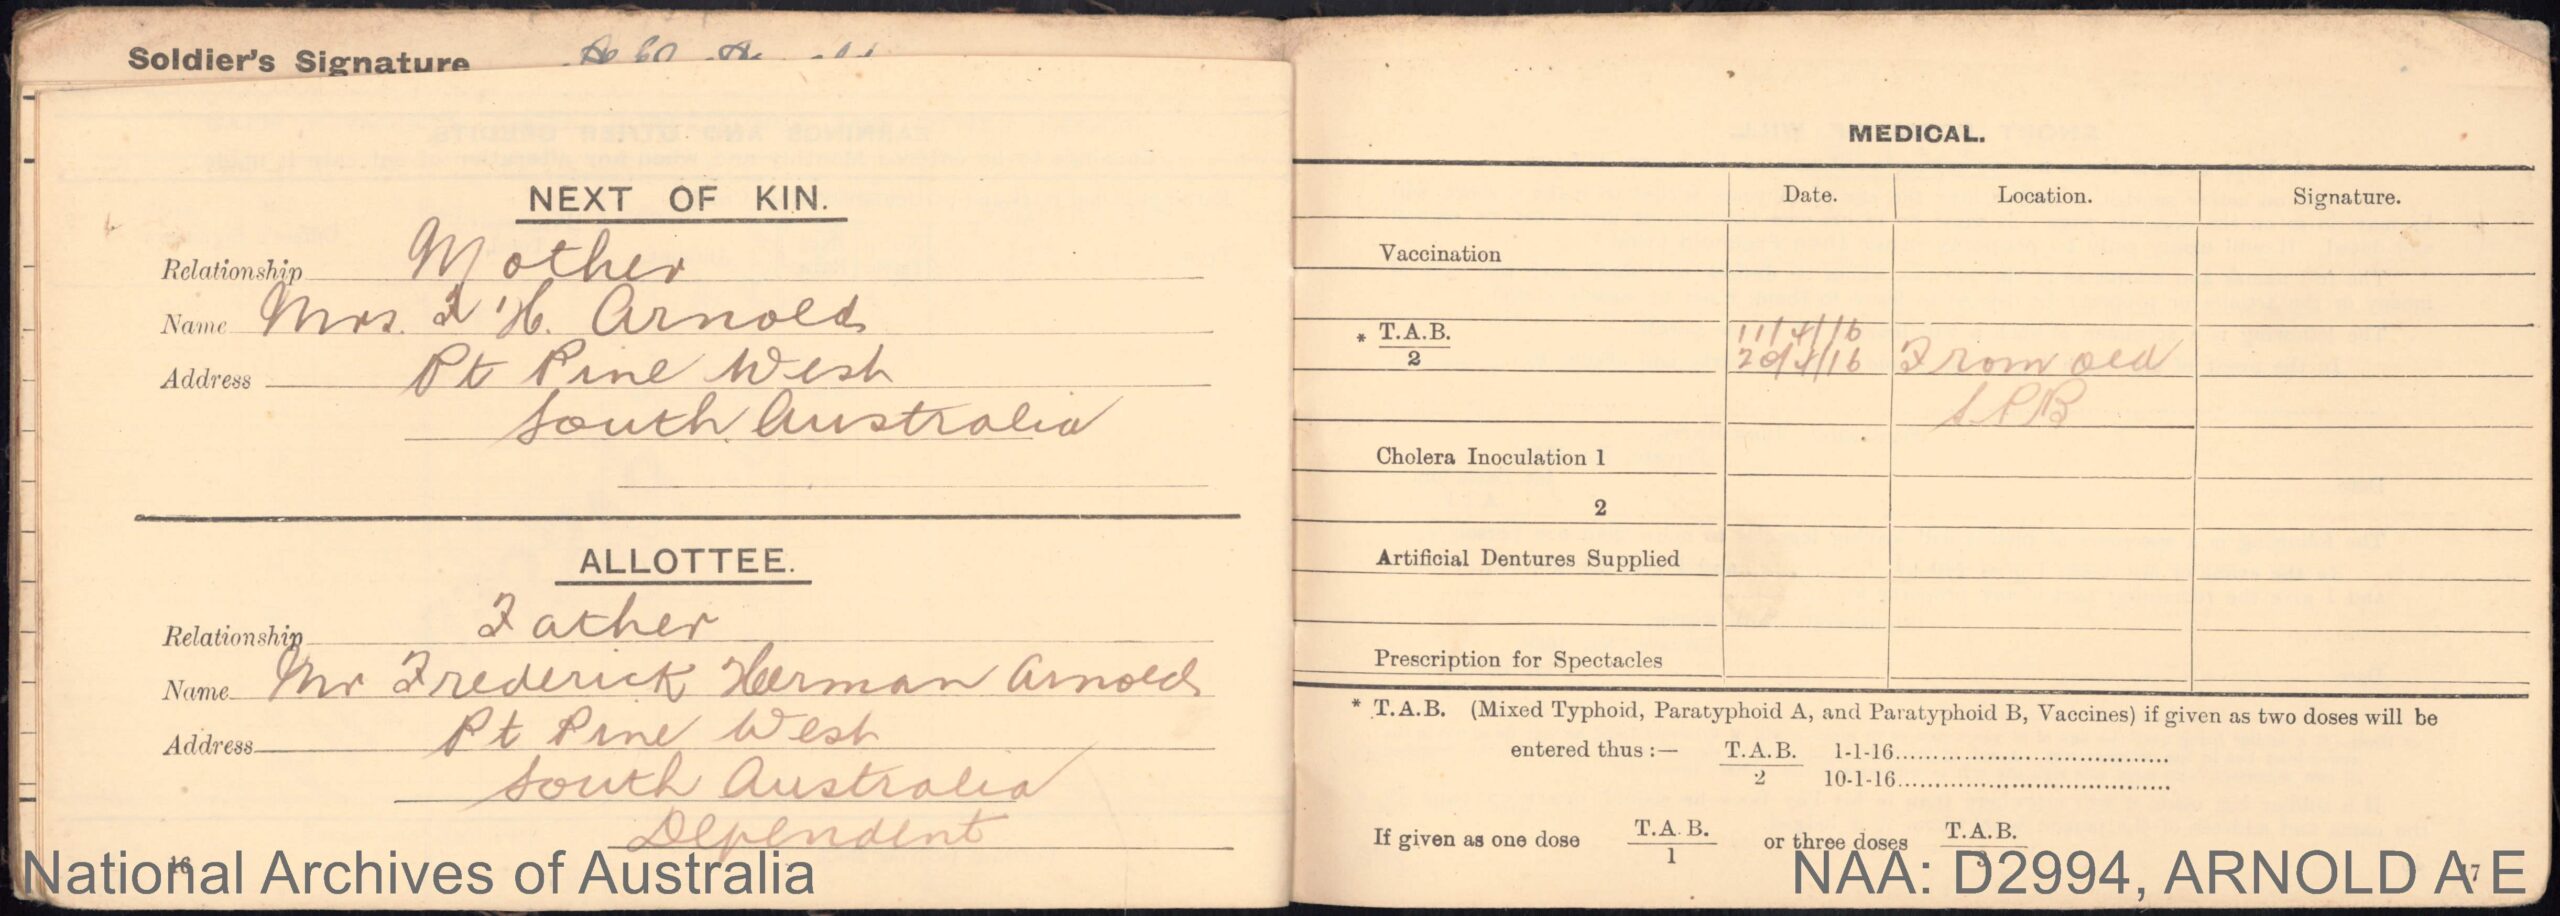 Soldier's Signature
NEXT OF KIN.
Relationship Mother
Name Mrs. F H. Arnold
Address Pt Pirie West
South Australia
ALLOTTEE.
Relationship Father
Name Mr Frederick Herman Arnold
Address Pt Pirie West
South Australia
Dependent
16
MEDICAL.
Date. Location. Signature.
Vaccination
* T.A.B. 11/4/16
2 20/4/16 From old
S P B
Cholera Inoculation 1
2
Artificial Dentures Supplied
Prescription for Spectacles
* T.A.B. (Mixed Typhoid, Paratyphoid A, and Paratyphoid B, Vaccines) if given as two doses will be
entered thus :— T.A.B. 1-1-16
2 10-1-16
If given as one dose T.A.B. or three doses T.A.B.
1 3
17
National Archives of Australia
NAA: D2994, ARNOLD A E